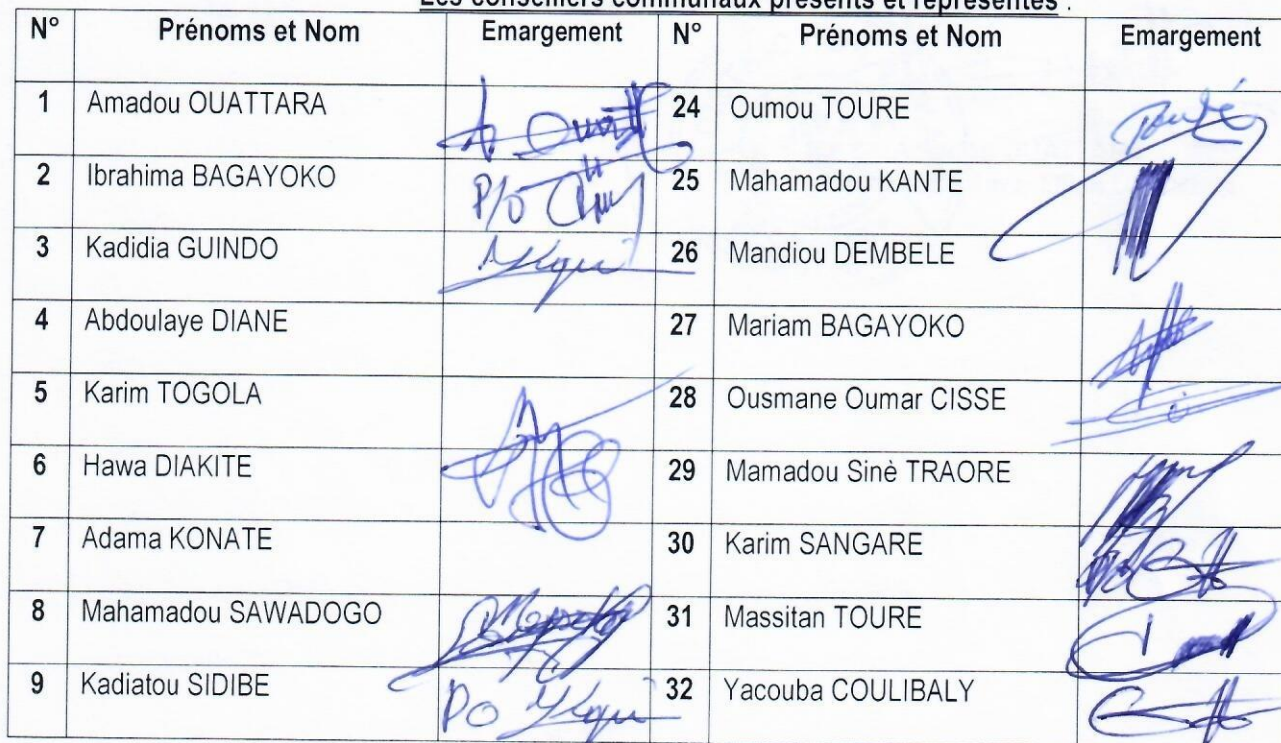 Les conseillers communaux présents et représentés :
N° Prénoms et Nom Emargement N° Prénoms et Nom Emargement
1 Amadou OUATTARA 24 Oumou TOURE
2 Ibrahima BAGAYOKO P/o 25 Mahamadou KANTE
3 Kadidia GUINDO 26 Mandiou DEMBELE
4 Abdoulaye DIANE 27 Mariam BAGAYOKO
5 Karim TOGOLA 28 Ousmane Oumar CISSE
6 Hawa DIAKITE 29 Mamadou Sinè TRAORE
7 Adama KONATE 30 Karim SANGARE
8 Mahamadou SAWADOGO 31 Massitan TOURE
9 Kadiatou SIDIBE PO 32 Yacouba COULIBALY